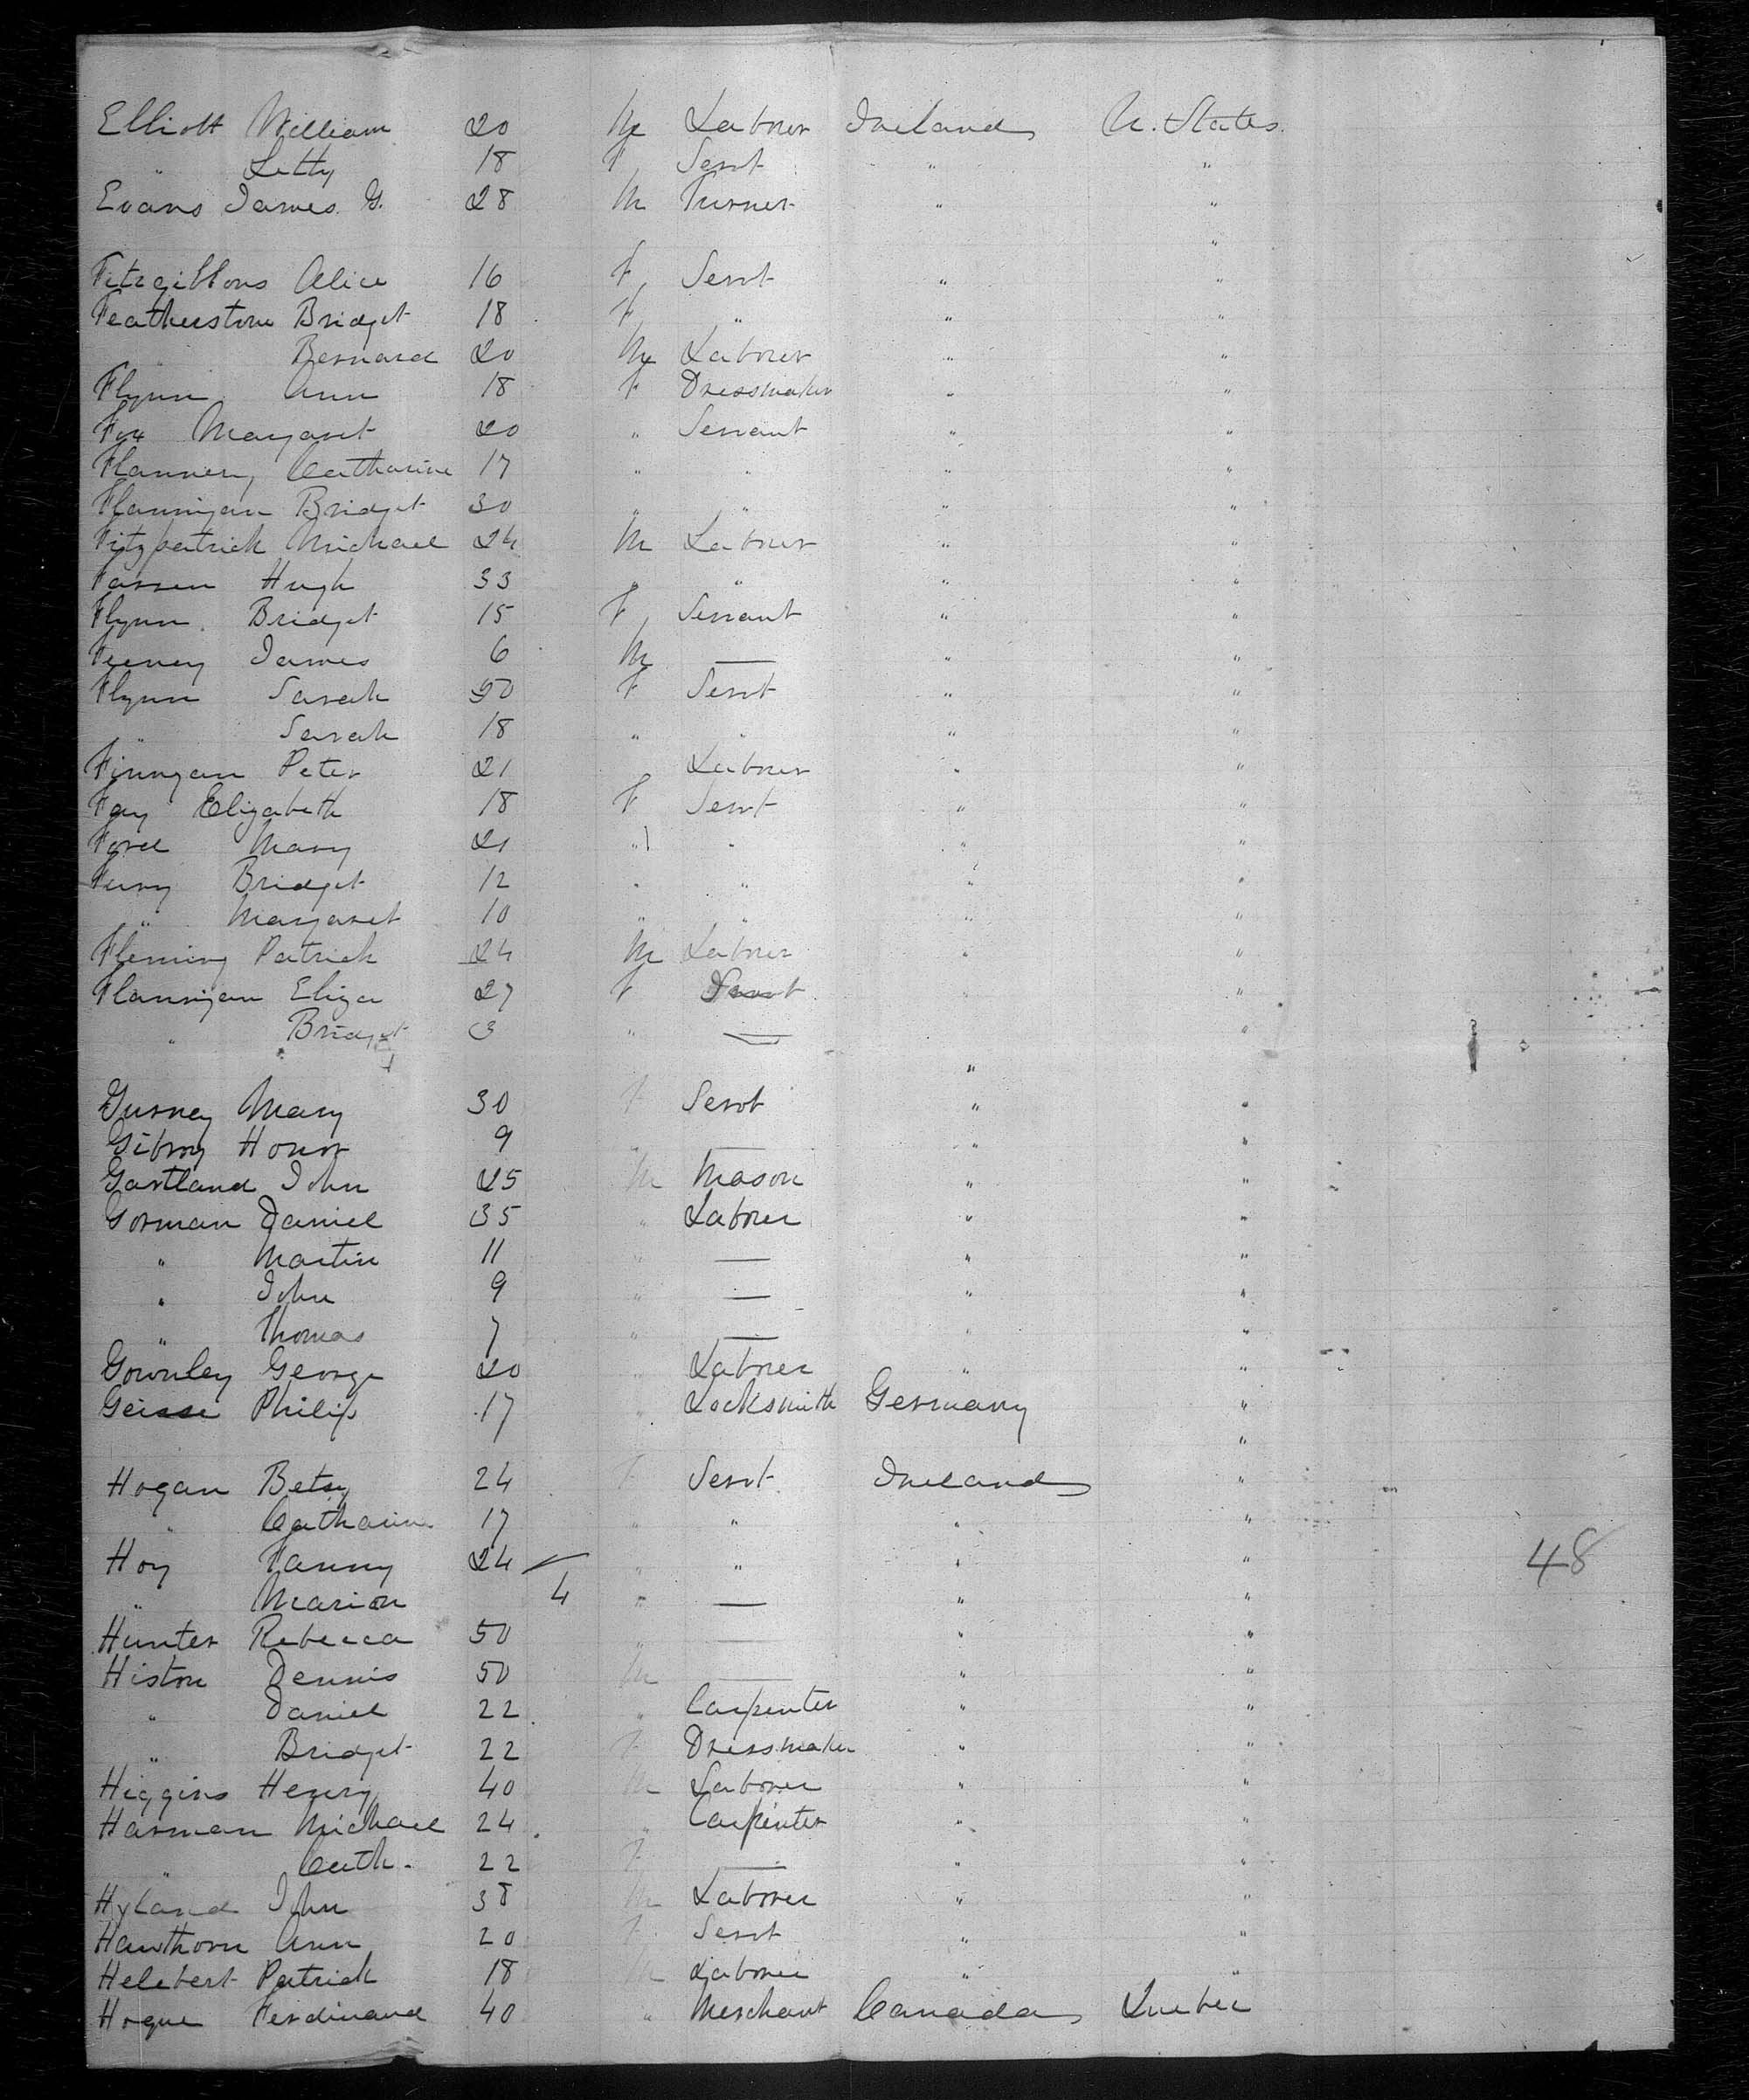 Elliott William 20 M Laborer Ireland U. States.
" Letty 18 F Servt " "
Evans James G. 28 M Turner " "
"
Fitzgibbons Alice 16 F Servt " "
Featherstone Bridget 18 F " " "
" Bernard 20 M Laborer " "
Flynn Ann 18 F Dressmaker " "
Fox Margaret 20 " Servant " "
Flannery Catharine 17 " " " "
Flannigan Bridget 30 " " " "
Fitzpatrick Michael 24 M Laborer " "
Farren Hugh 33 " " " "
Flynn Bridget 15 F Servant " "
Feeney James 6 M — " "
Flynn Sarah 50 F Servt " "
" Sarah 18 " " " "
Finnigan Peter 21 Laborer " "
Fay Elizabeth 18 F Servt " "
Ford Mary 21 " " " "
Furry Bridget 12 " " " "
" Margaret 10 " " " "
Fleming Patrick 24 M Laborer " "
Flannigan Eliza 27 F Servt " "
" Bridget 3 " — "
"
Gurney Mary 30 F Servt " "
Gibroy Honor 9 — " "
Gartland John 25 M Mason " "
Gorman Daniel 35 " Laborer " "
" Martin 11 " — " "
" John 9 " — " "
" Thomas 7 " — " "
Gownley George 20 " Laborer " "
Geisse Philip 17 " Locksmith Germany "
"
Hogan Betsy 24 F Servt Ireland "
" Catharine 17 " " " "
Hoy Fanny 24 " " " " 48
" Marion 4 " — " "
Hunter Rebecca 50 " — " "
Histon Dennis 50 M — " "
" Daniel 22 " Carpenter " "
" Bridget 22 F Dressmaker " "
Higgins Henry 40 M Laborer " "
Harman Michael 24 " Carpenter " "
" Cath. 22 F — " "
Hyland John 38 M Laborer " "
Hawthorn Ann 20 F Servt " "
Helebert Patrick 18 M Laborer " "
Hogue Ferdinand 40 " Merchant Canada Quebec